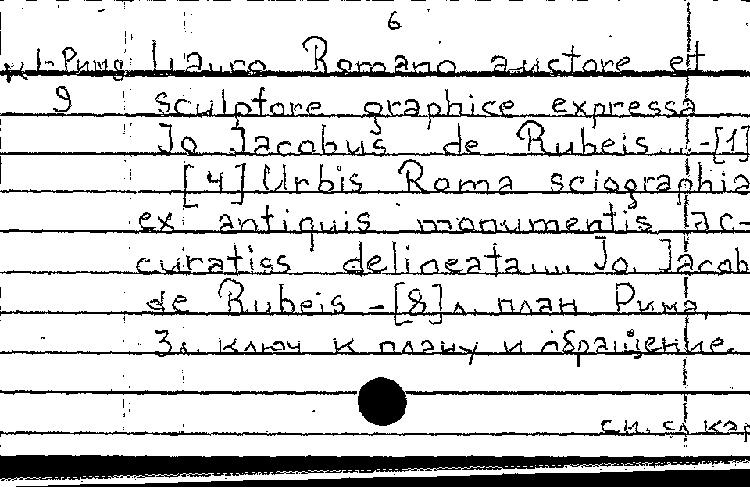 6
к I-Рим Lauro Romano auctore et
9 sculptore graphice expressa
Jo Jacobus de Rubeis... -[1]
[4] Urbis Roma sciographia
ex antiquis monumentis ac-
curatiss delineata.... Jo. Jacob
de Rubeis -[8] л. план Рима,
3л. ключ к плану и обращение.
см. сл кар